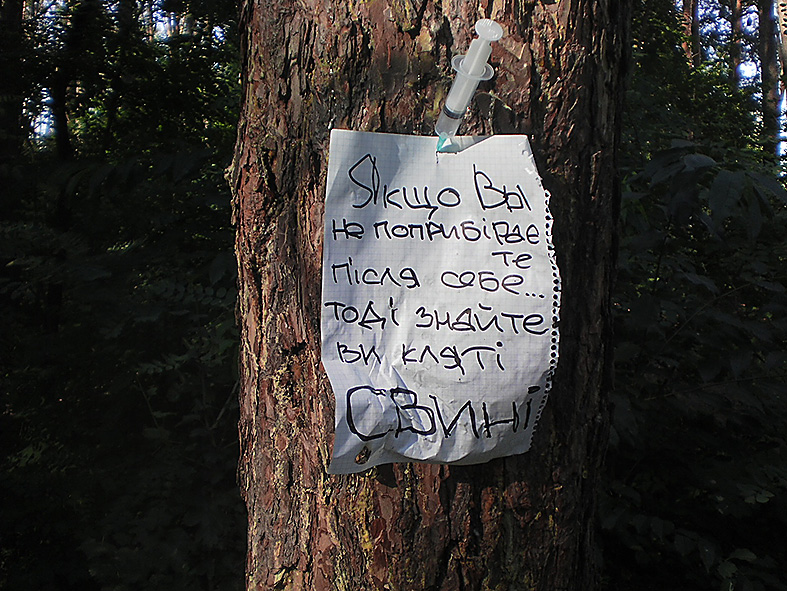 Якщо Вы
не поприбірає
те
після себе...
тоді знайте
ви кляті
СВИНІ